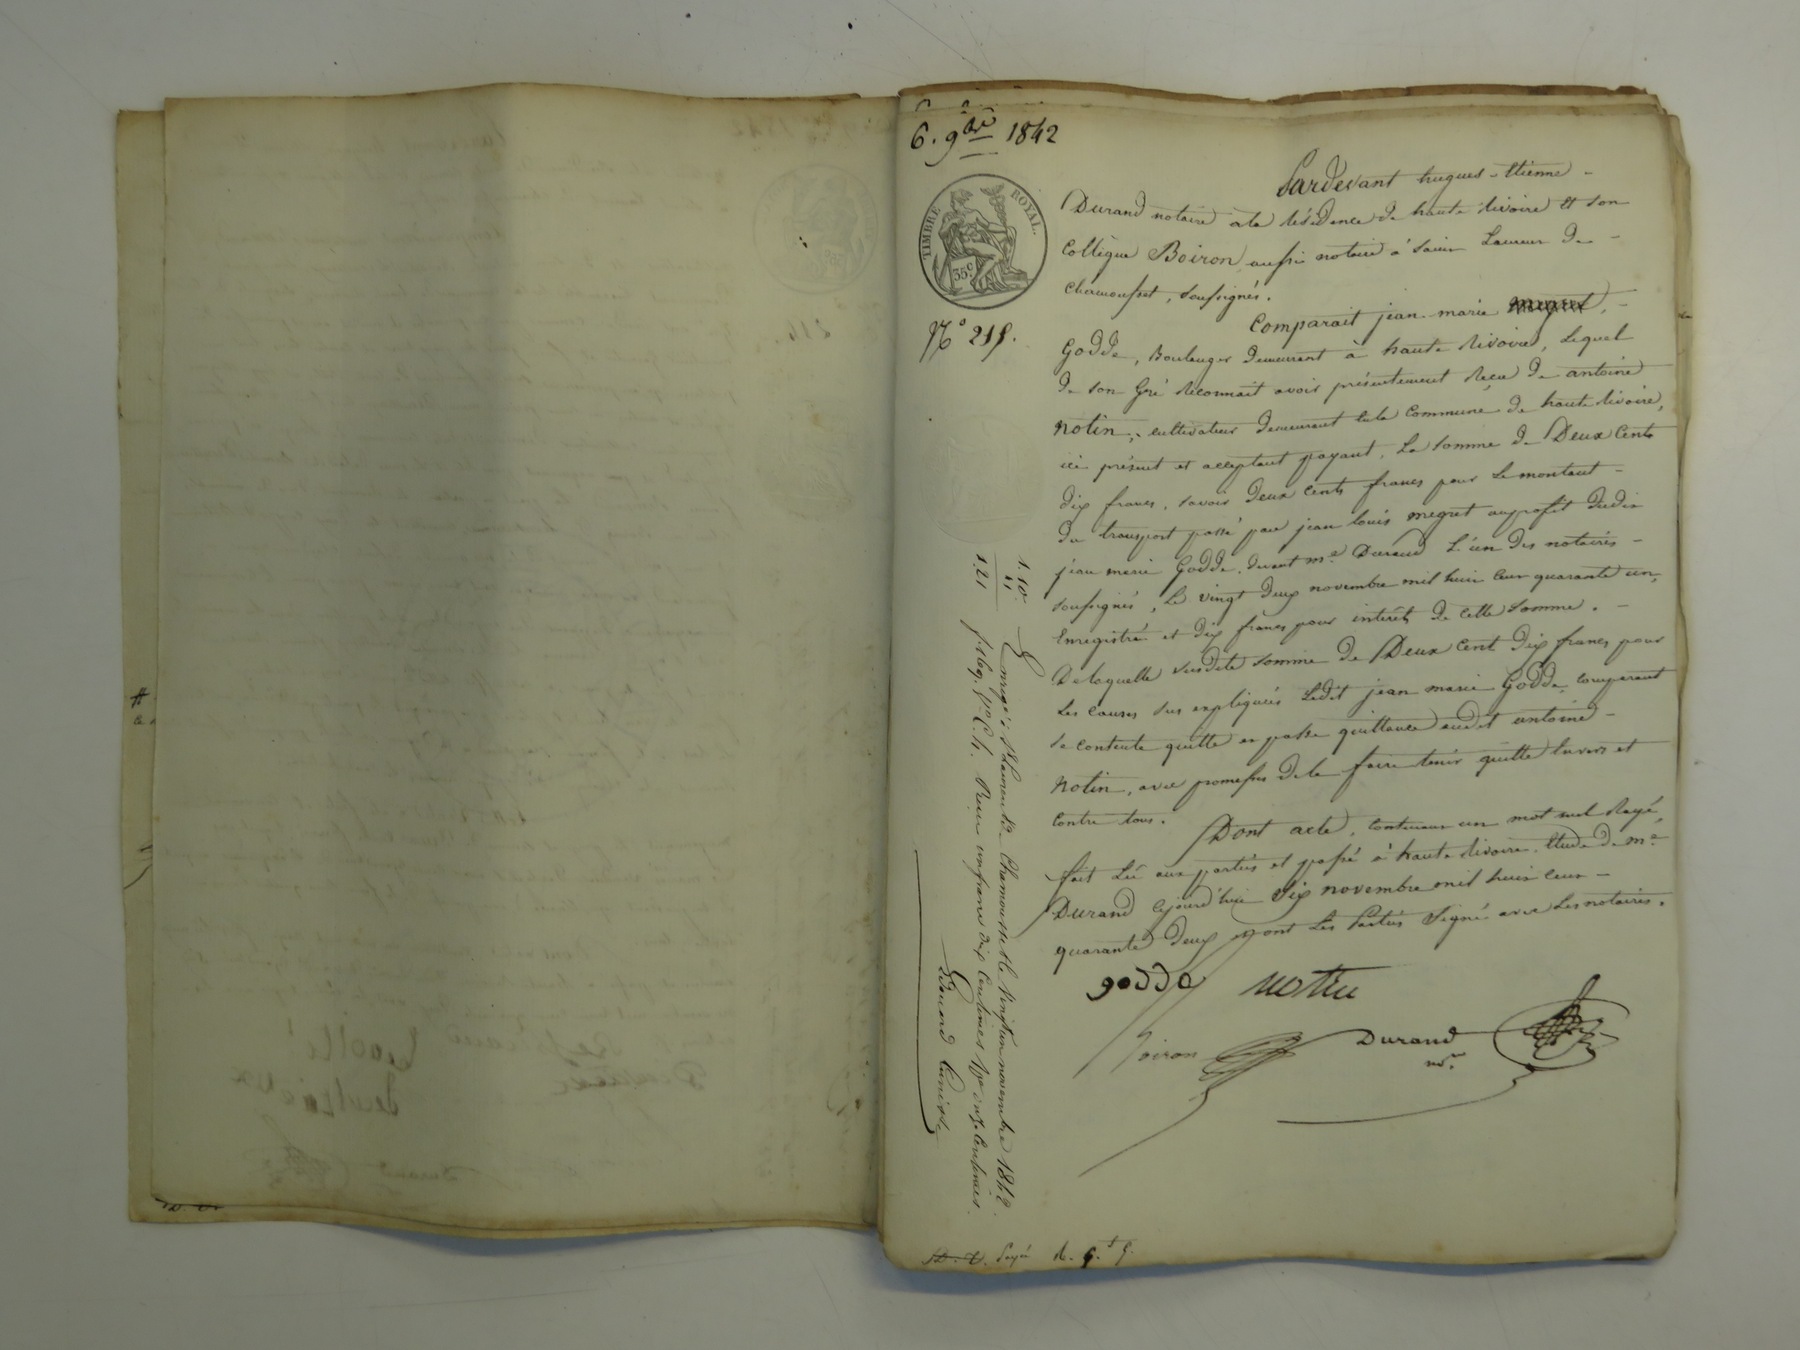 6. 9bre 1842
TIMBRE ROYAL.
35 c.
N° 215.
Pardevant hugues-Etienne -
Durand notaire à la résidence de haute rivoire et son
Collègue Boiron aussi notaire à saint Laurent de -
chamousset, soussignés.
Comparait jean marie megret, -
Godde, Boulanger demeurant à haute rivoire, Lequel
de son Gré Reconnait avoir présentement Reçu de antoine
Notin, cultivateur demeurant en la commune de haute rivoire,
ici présent et acceptant payant, La somme de Deux Cents
dix francs, savoir deux cents francs pour Le montant -
du transport passé par jean louis megret au profit dudit
jean marie Godde, devant me Durand L'un des notaires -
soussignés, Le vingt deux novembre mil huit cent quarante un,
Enregistré et dix francs pour intérêts de cette somme. -
De laquelle susdite somme de Deux Cent Dix francs pour
Les causes sus expliquées Ledit jean marie Godde, comparant
se contente quitte en passe quittance audit antoine -
Notin, avec promesses de le faire tenir quitte envers et
contre tous.
Dont acte, contenant un mot nul Rayé,
fait Lû aux parties et passé à haute rivoire Etude de me
Durand cejourd'hui Six novembre mil huit cent -
quarante deux et ont Les Parties Signé avec Les notaires.
godde notin
Boiron Durand
no.re
1. 10.
11
1.21
Enregé à St Laurent de Chamousset le vingt un novembre 1842.
fo 169. Vo C. 4. Reçu un franc dix Centimes 10e onze Centimes.
D. D. Payé